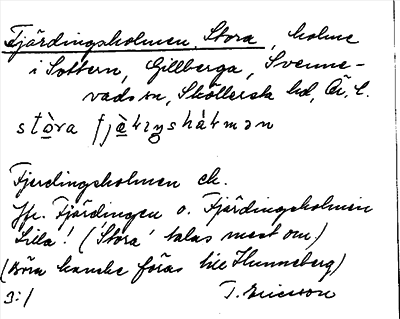 Fjärdingsholmen, Stora, holme
i Sottern, Gillberga, Svenne-
vads sn, Sköllersta hd, Ör. l.
stòra fjä̀ɽiŋshåɽmən
Fjerdingsholmen ek.
Jfr. Fjärdingen o. Fjärdingsholmen
Lilla! (Stora' talas mest om.)
(Böra kanske föras till Hunneberg)
T. Ericsson